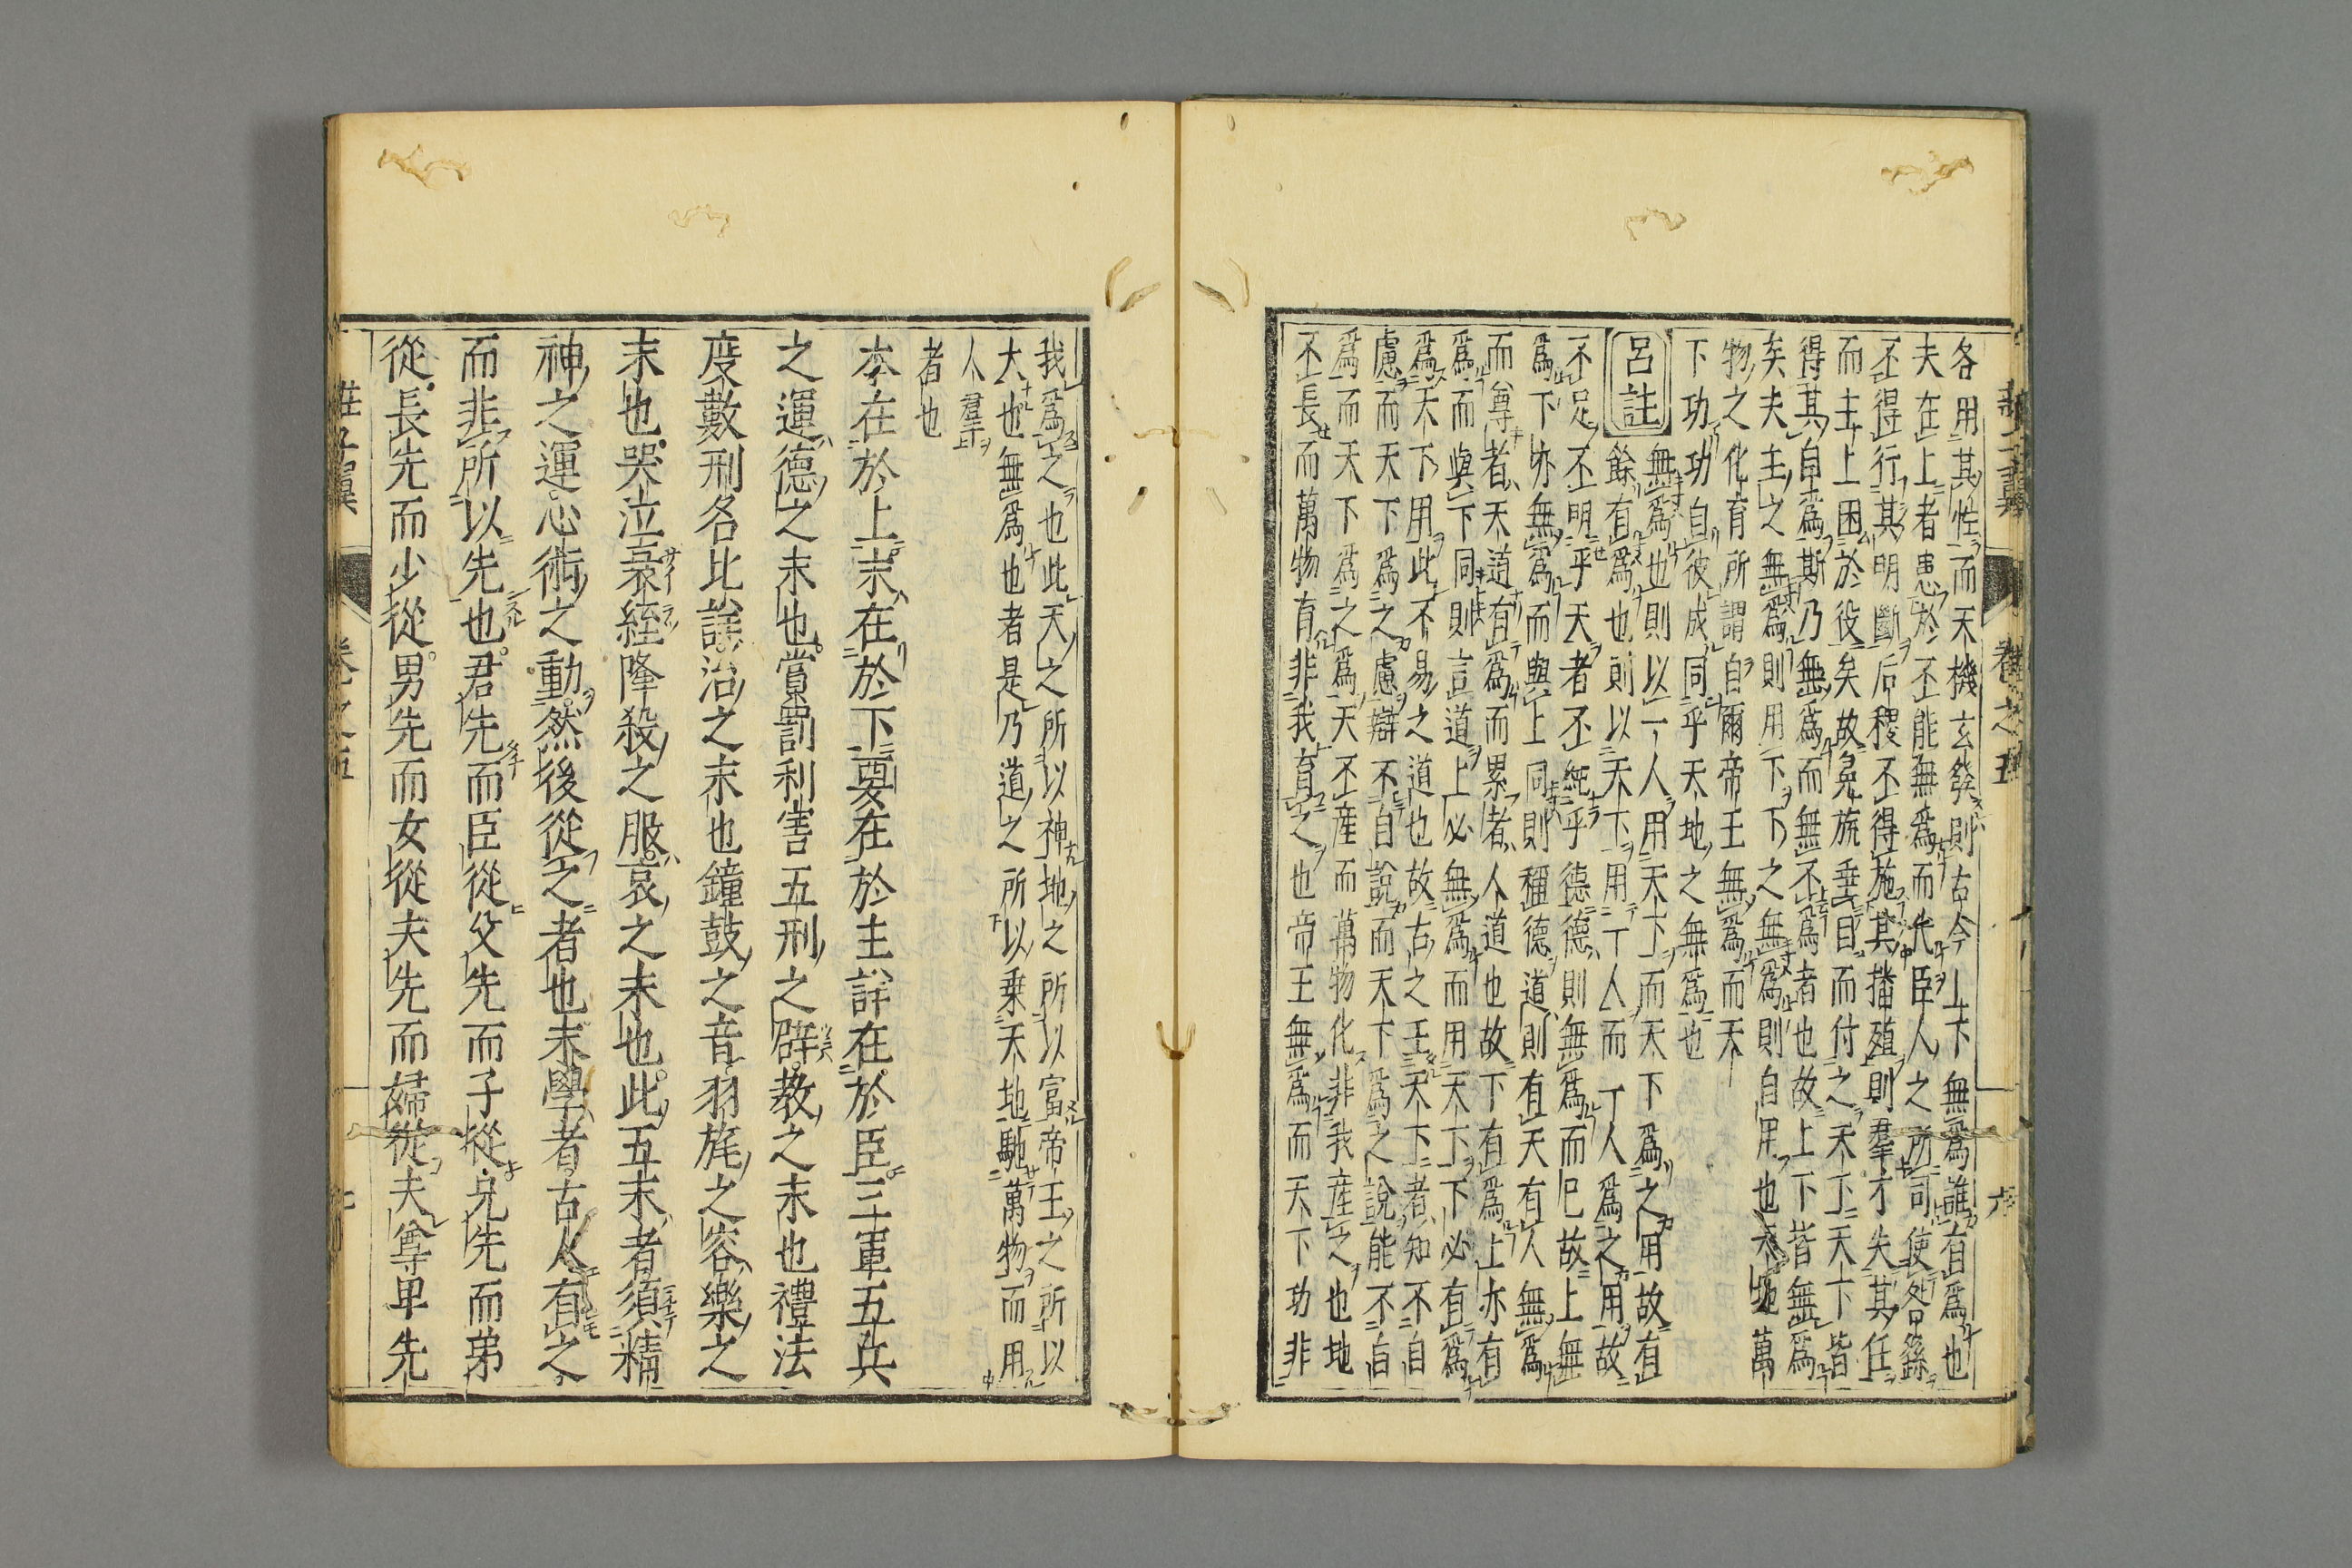 莊子翼 卷之五 六
各用其性而天機玄發則古今上下無爲誰有爲也
夫在上者患於不能無爲而代臣人之所司使咎繇
不得行其明斷后稷不得施其播殖則羣才失其任
而主上困於役矣故冕旒垂目而付之天下天下皆
得其自爲斯乃無爲而無不爲者也故上下皆無爲
矣夫主之無爲則用下下之無爲則自用也天地萬
物之化育所謂自爾帝王無爲而天
下功功自彼成同乎天地之無爲也
呂註
無爲也則以一人用天下而天下爲之用故有
餘有爲也則以天下用一人而一人爲之用故
不足不明乎天者不純乎德德則無爲而已故上無
爲下亦無爲而與上同則稱德道則有天有人無爲
而尊者天道有爲而累者人道也故下有爲上亦有
爲而與下同則言道上必無爲而用天下下必有爲
爲天下用此不易之道也故古之王天下者知不自
慮而天下爲之慮辯不自說而天下爲之說能不自
爲而天下爲之爲天不產而萬物化非我產之也地
不長而萬物育非我育之也帝王無爲而天下功非
我爲之也此天之所以神地之所以富帝王之所以
大也無爲也者是乃道之所以乗天地馳萬物而用
人羣
者也
本在於上末在於下要在於主詳在於臣三軍五兵
之運德之末也賞罰利害五刑之辟教之末也禮法
度數刑名比詳治之末也鐘鼓之音羽旄之容樂之
末也哭泣衰絰隆殺之服哀之末也此五末者須精
神之運心術之動然後從之者也末學者古人有之
而非所以先也君先而臣從父先而子從兄先而弟
從長先而少從男先而女從夫先而婦從夫尊卑先
莊子翼 卷之五